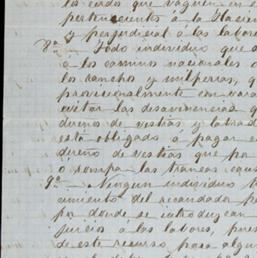 los cerdo que vaguen en e
pertenecientes á la Hacien
y perjudicial á las labore
8ª - Todo individuo que a
á los caminos nacionales o
los rancho y milperias, q
provisionalmente con vara
evitar las desavenencias q
dueños de vestias y labrad
está obligado á pagar e
dueño de vestias que po
o rompa las trancas equs
9ª - Ningun individuo t
miento del recaudado p
por donde se introduzcan
juicio á las labores, pues
de este recurso, pasa algun